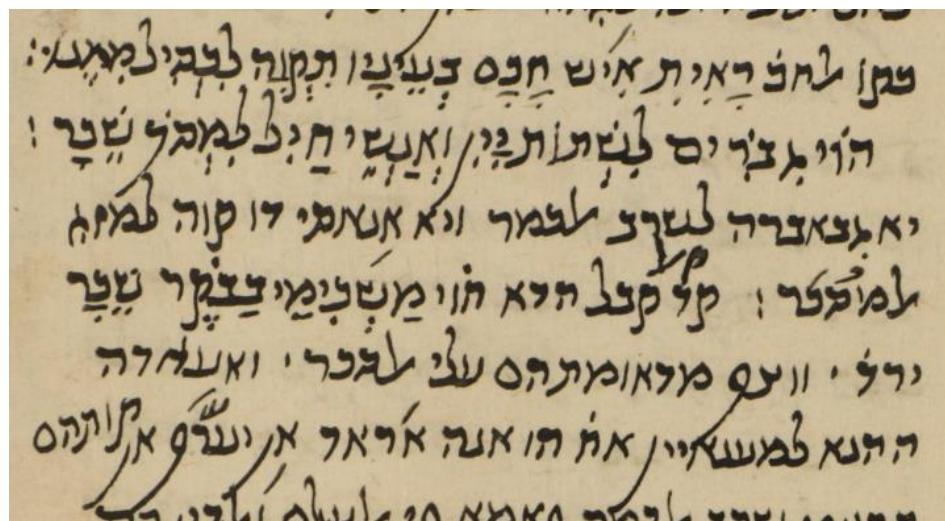 כקו׳ אלחכ׳ רָאִיתָ אִישׁ חָכָם בְּעֵינָיו תִּקְוָה לִכְסִיל מִמֶּנּוּ :
הוֹי גִבֹרִים לִשְׁתוֹת יַיִן וְאַנְשֵׁי חַיִל לִמְסֹךְ שֵׁכָר :
יא גבאברה לשרב אלכמר ויא אנאסי דו קוה למזג
אלמוסכר : קד קאל קבל הדא הוֹי מַשְׁכִּימֵי בַבֹּקֶר שֵׁכָר
ירד׳ ווצף מדאומתהם עלי אלסכר ואעאדה
ההנא למענאיין אח׳ הו אנה אראד אן יערף אן קותהם